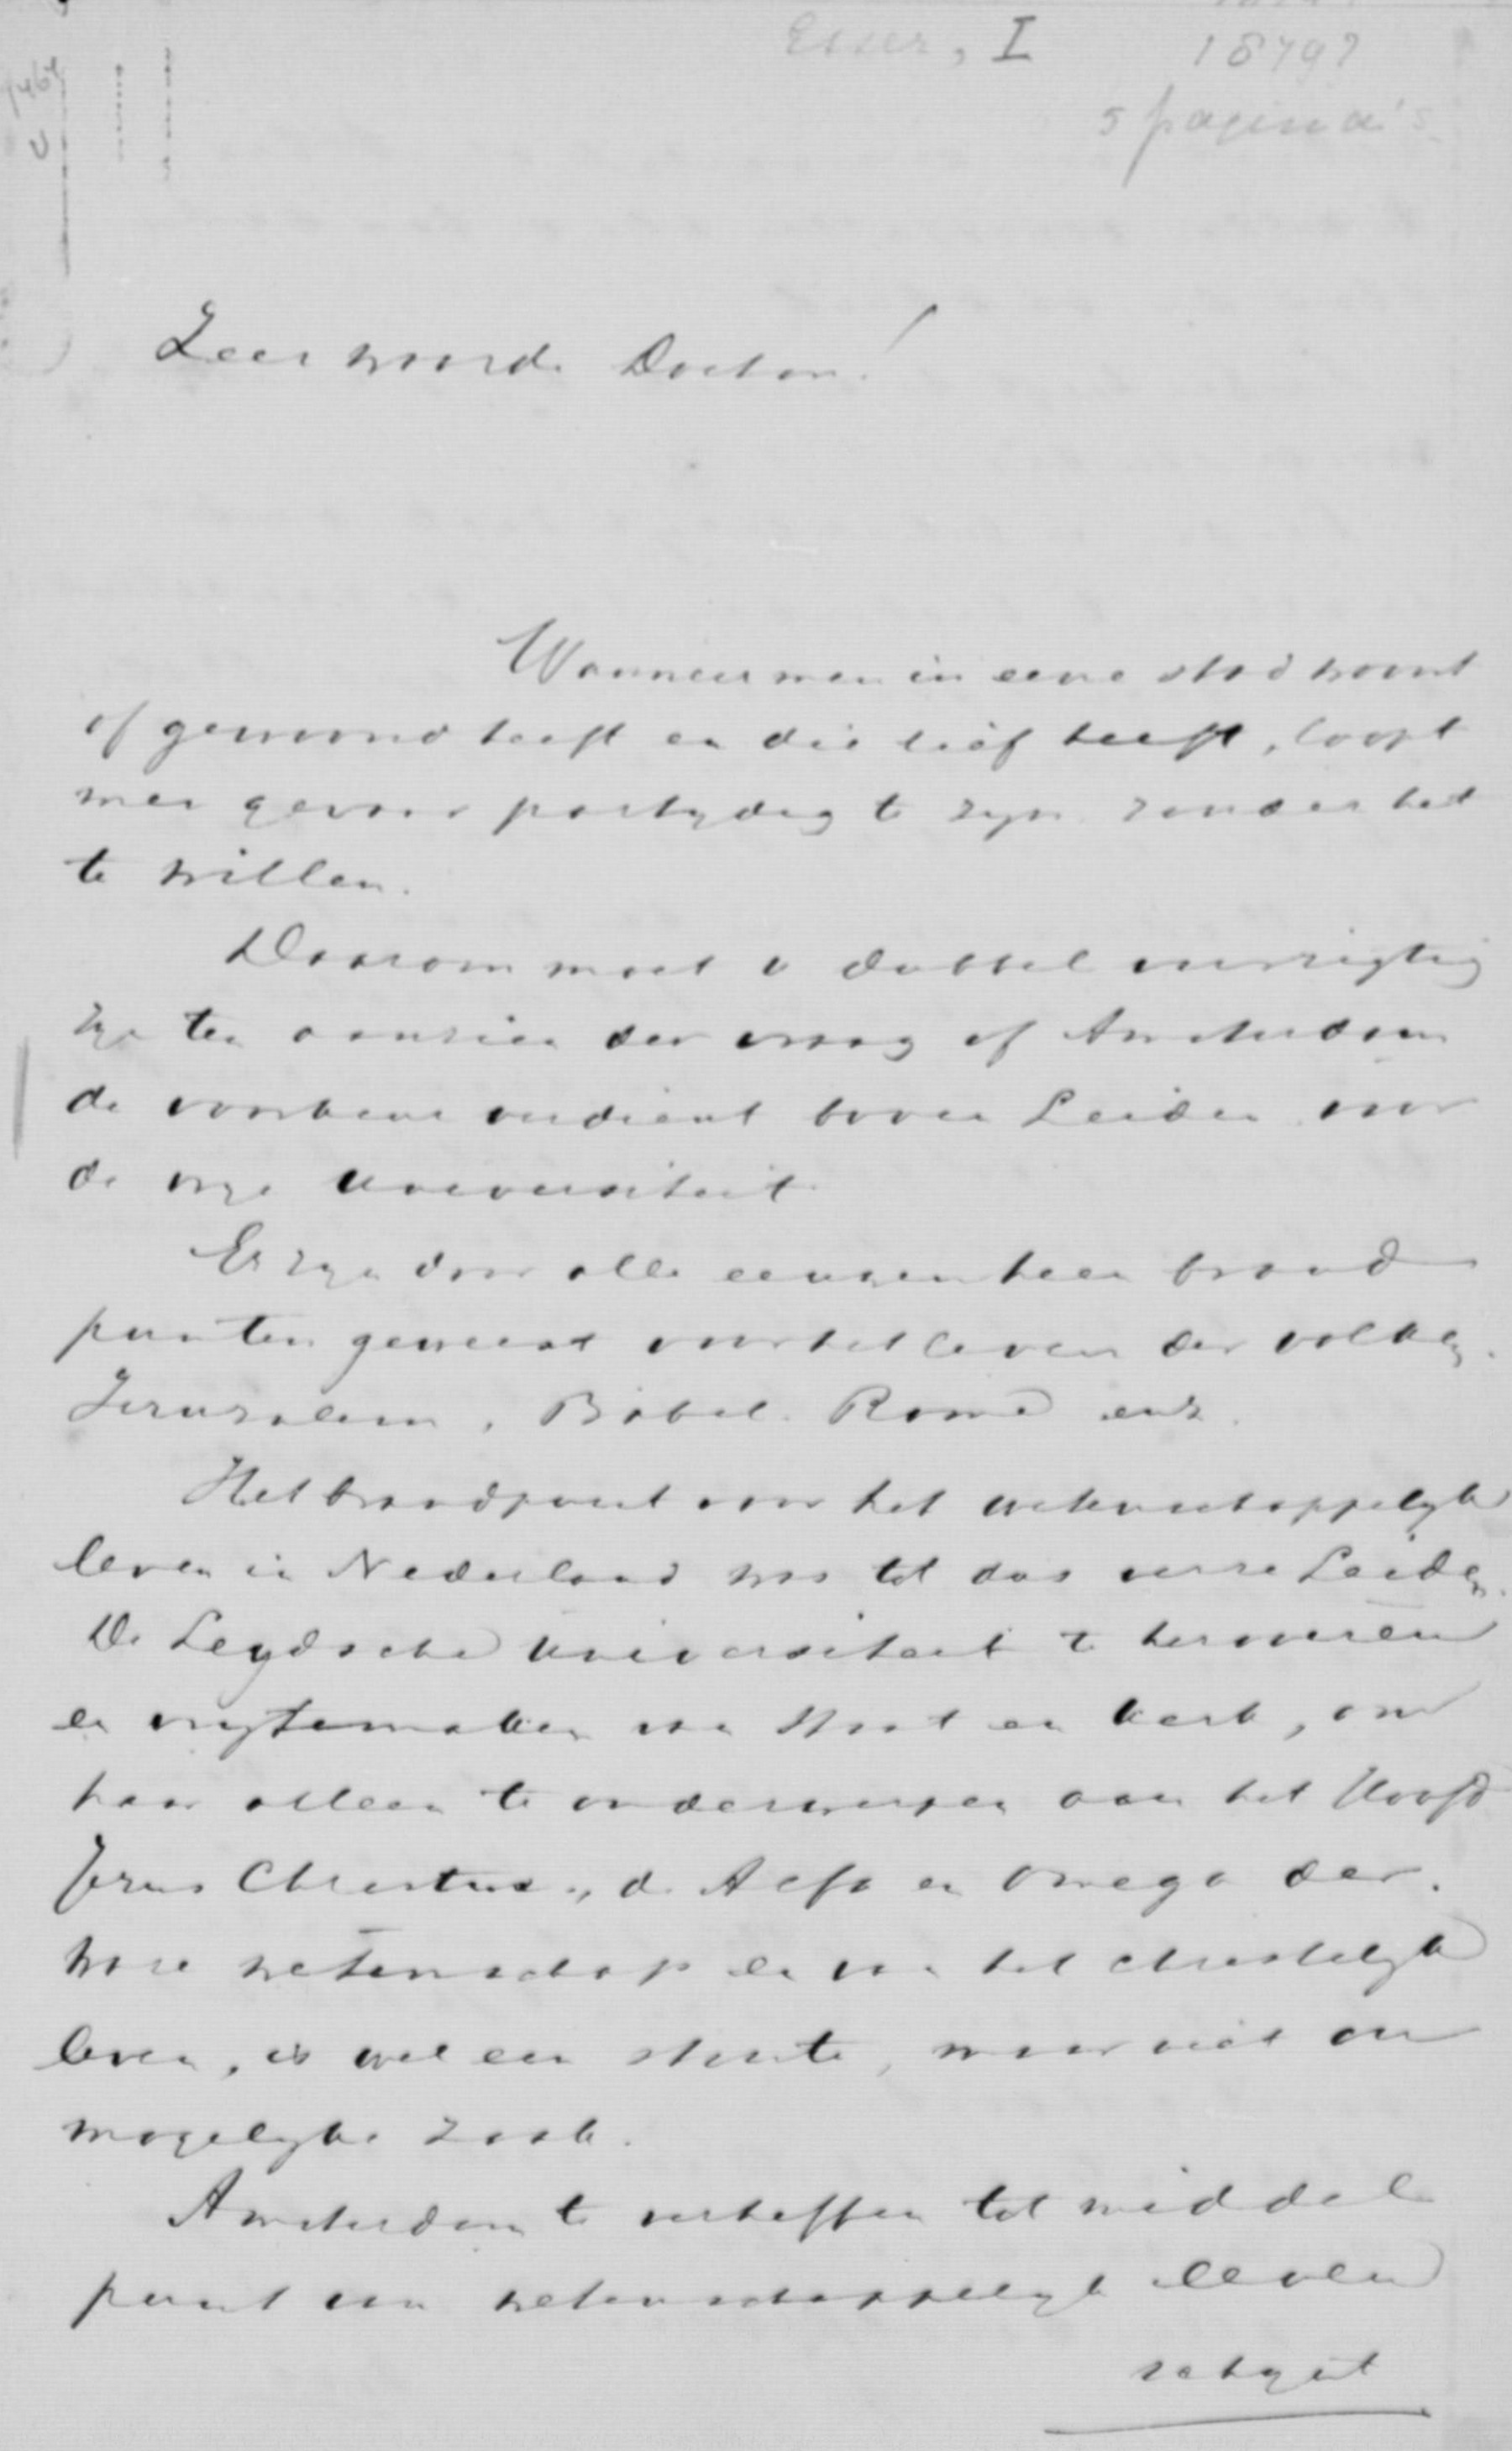 Esser, I 1879?
5 pagina's
Zeer waarde Doctor!
Wanneer men in eene stad woont
of gewoond heeft en die lief heeft, loopt
men gevaar partydig te zyn zonder het
te willen.
Daarom moet u dubbel voorzigtig
zyn ten aanzien der vraag of Amsterdam
de voorkeur verdient boven Leiden voor
de vrye Universiteit.
Er zyn door alle eeuwen heen brand
punten geweest voor het leven der volken.
Jeruzalem, Babel. Rome enz.
Het brandpunt voor het wetenschappelyk
leven in Nederland was tot dus verre Leiden.
De Leydsche Universiteit te heroveren
en vrytemaken van Staat en kerk, om
haar alleen te onderwerpen aan het Hoofd
Jezus Christus, de Alfa en Omega der
ware wetenschap en van het christelyk
leven, is wel een stoute, maar niet on
mogelyke zaak.
Amsterdam te verheffen tot middel
punt van wetenschappelyk leven
schynt